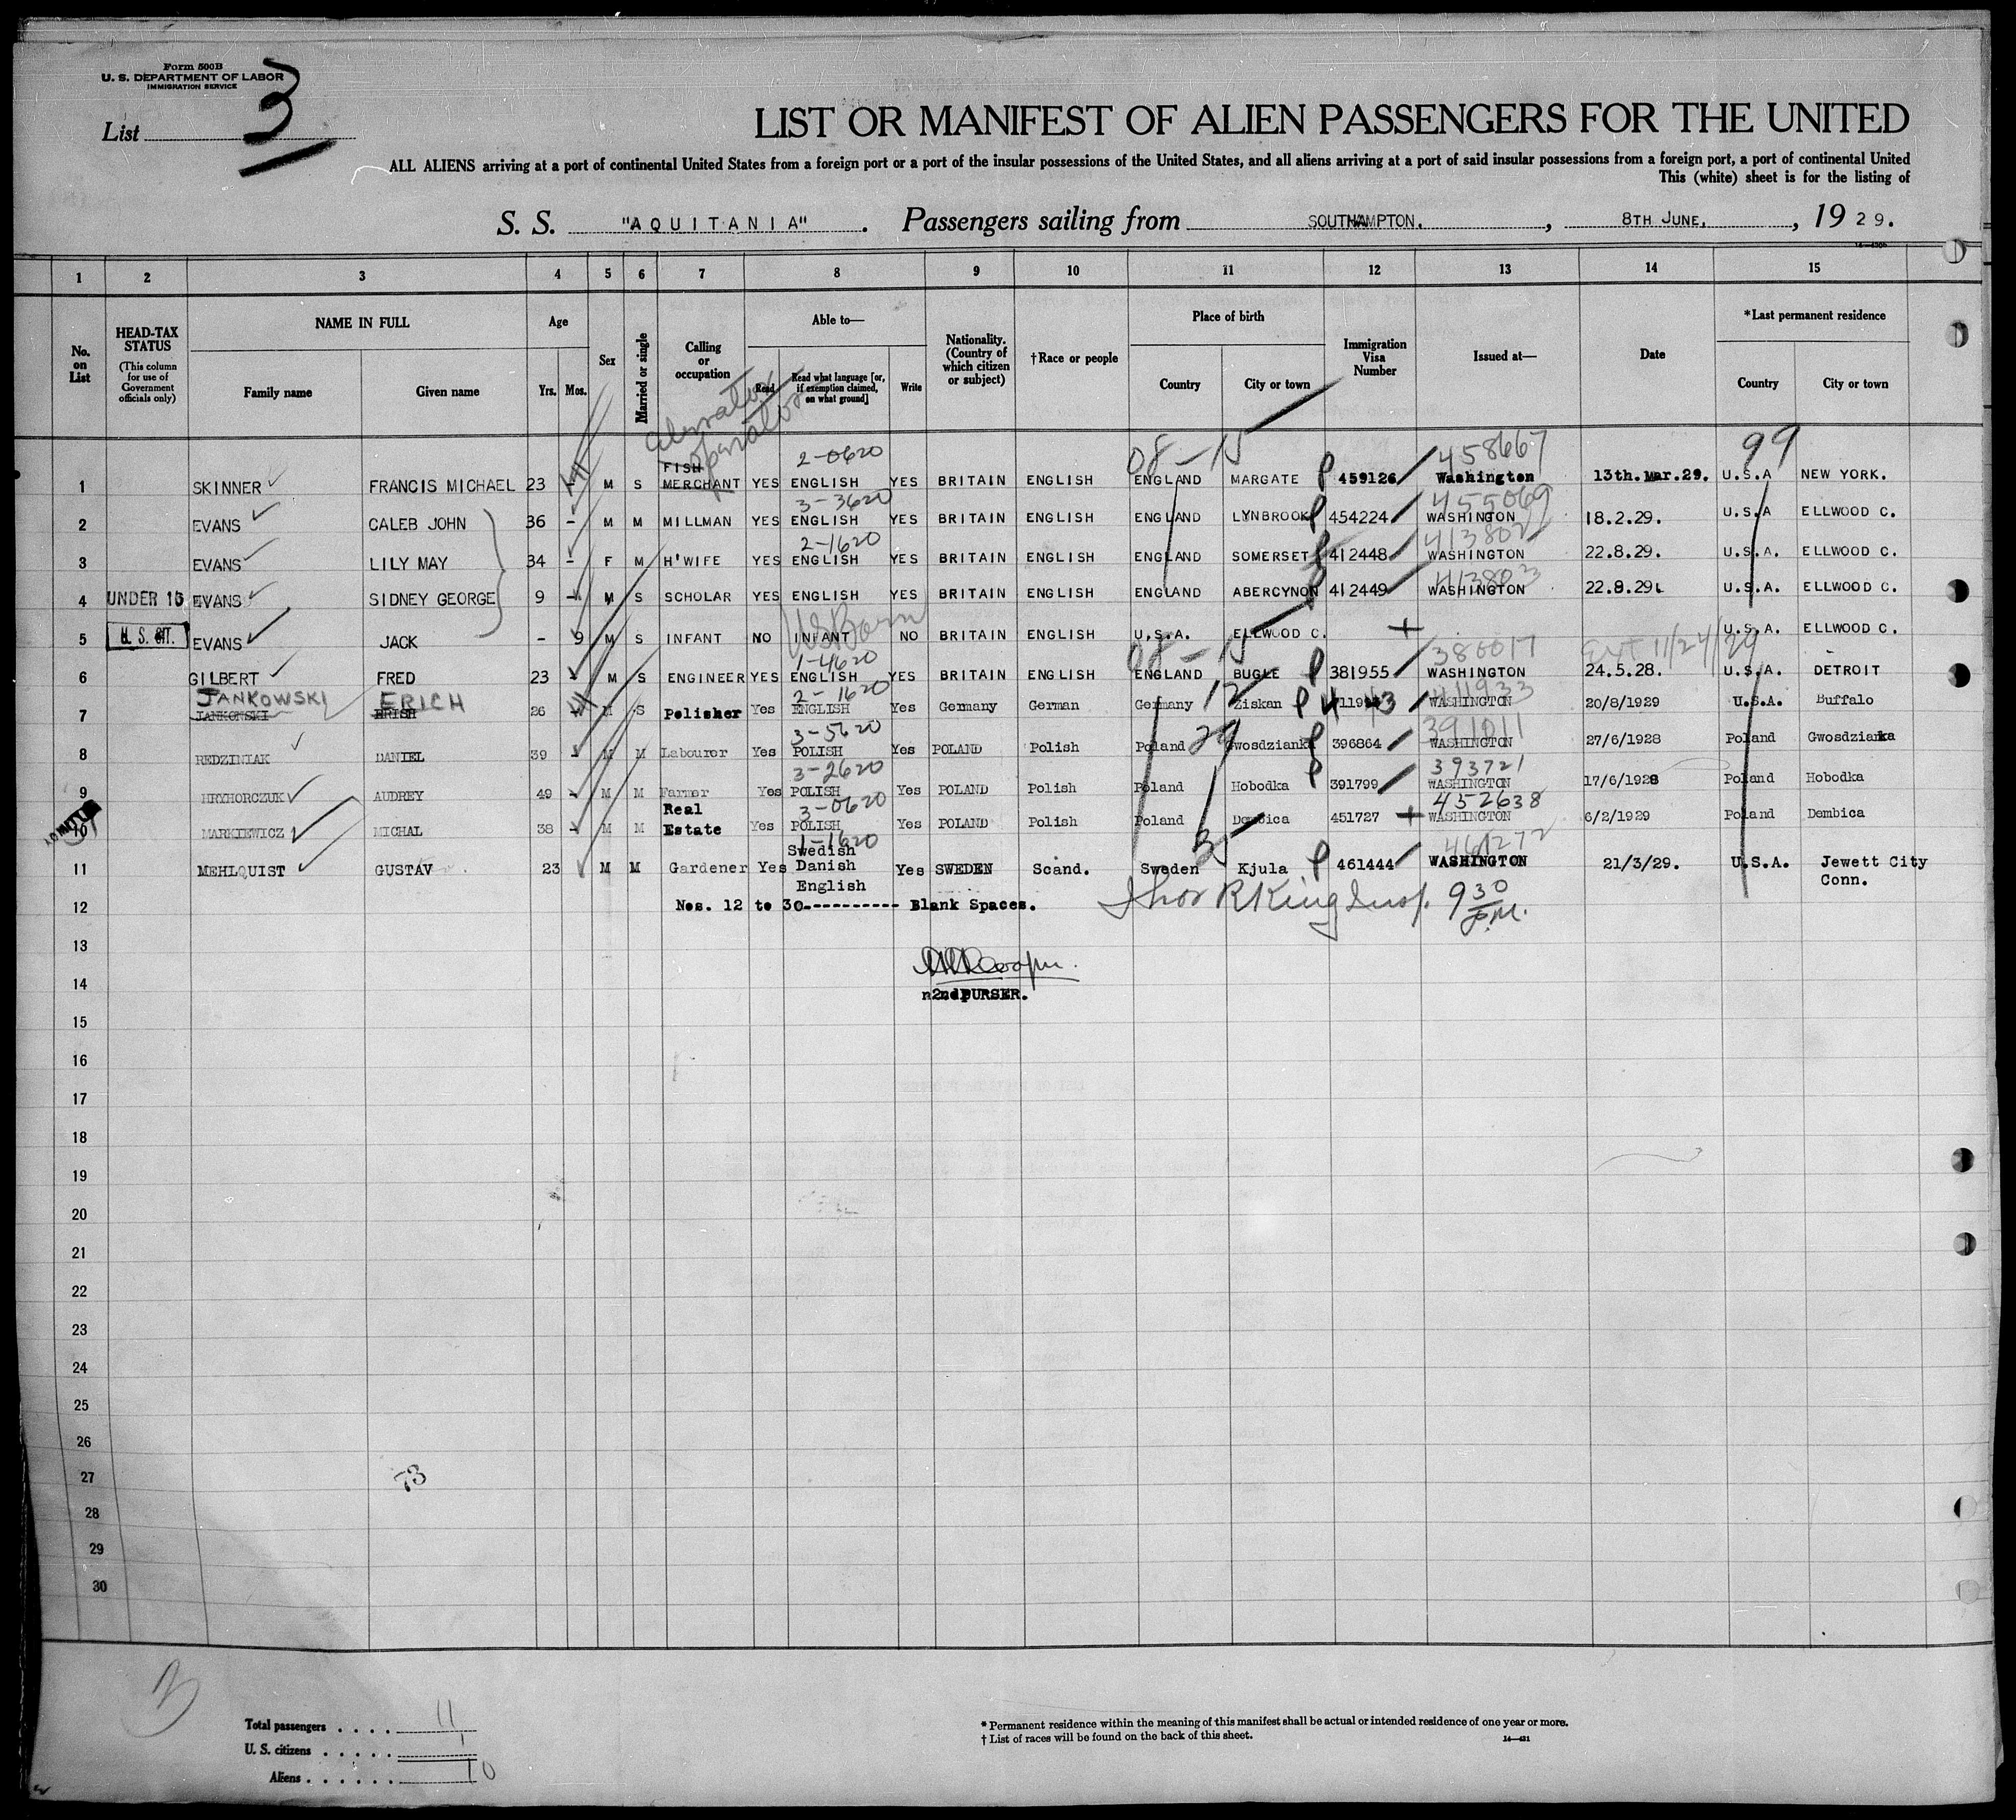 Form 500B
U. S. DEPARTMENT OF LABOR
IMMIGRATION SERVICE
List 3
LIST OR MANIFEST OF ALIEN PASSENGERS FOR THE UNITED
ALL ALIENS arriving at a port of continental United States from a foreign port or a port of the insular possessions of the United States, and all aliens arriving at a port of said insular possessions from a foreign port, a port of continental United
This (white) sheet is for the listing of
S. S. "AQUITANIA". Passengers sailing from SOUTHAMPTON. , 8TH JUNE, , 1929.
1 2 3 4 5 6 7 8 9 10 11 12 13 14 15
No. on List
HEAD-TAX STATUS (This column for use of Government officials only)
NAME IN FULL Family name Given name
Age Yrs. Mos.
Sex
Married or single
Calling or occupation
Able to— Read Read what language [or, if exemption claimed, on what ground] Write
Nationality. (Country of which citizen or subject)
†Race or people
Place of birth Country City or town
Immigration Visa Number
Issued at—
Date
*Last permanent residence Country City or town
elevator operator
2-0620 08-15 458667 99
1 SKINNER FRANCIS MICHAEL 23 - M S FISH MERCHANT YES ENGLISH YES BRITAIN ENGLISH ENGLAND MARGATE 459126 Washington 13th.Mar.29. U.S.A NEW YORK.
3-3620 455069
2 EVANS CALEB JOHN 36 - M M MILLMAN YES ENGLISH YES BRITAIN ENGLISH ENGLAND LYNBROOK 454224 WASHINGTON 18.2.29. U.S.A ELLWOOD C.
2-1620 413802
3 EVANS LILY MAY 34 - F M H'WIFE YES ENGLISH YES BRITAIN ENGLISH ENGLAND SOMERSET 412448 WASHINGTON 22.8.29. U.S.A. ELLWOOD C.
413803
4 UNDER 16 EVANS SIDNEY GEORGE 9 - M S SCHOLAR YES ENGLISH YES BRITAIN ENGLISH ENGLAND ABERCYNON 412449 WASHINGTON 22.8.29. U.S.A. ELLWOOD C.
US Born
5 U. S. CIT. EVANS JACK - 9 M S INFANT NO INFANT NO BRITAIN ENGLISH U.S.A. ELLWOOD C. U.S.A. ELLWOOD C.
1-4620 08-15 380017 Ext 11/24/29
6 GILBERT FRED 23 - M S ENGINEER YES ENGLISH YES BRITAIN ENGLISH ENGLAND BUGLE 381955 WASHINGTON 24.5.28. U.S.A. DETROIT
JANKOWSKI ERICH 2-1620 12 411933
7 JANKONSKI ERISH 26 - M S Polisher Yes ENGLISH Yes Germany German Germany Ziskan WASHINGTON 20/8/1929 U.S.A. Buffalo
3-5620 29 391011
8 REDZINIAK DANIEL 39 - M M Labourer Yes POLISH Yes POLAND Polish Poland Gwosdzianka 396864 WASHINGTON 27/6/1928 Poland Gwosdzianka
3-2620 393721
9 HRYHORCZUK AUDREY 49 - M M Farmer Yes POLISH Yes POLAND Polish Poland Hobodka 391799 WASHINGTON 17/6/1928 Poland Hobodka
3-0620 452638
10 MARKIEWICZ MICHAL 38 - M M Real Estate Yes POLISH Yes POLAND Polish Poland Dembica 451727 WASHINGTON 6/2/1929 Poland Dembica
1-1620 3
11 MEHLQUIST GUSTAV 23 M M Gardener Yes Swedish Danish English Yes SWEDEN Scand. Sweden Kjula 461444 WASHINGTON 21/3/29. U.S.A. Jewett City Conn.
12 Nos. 12 to 30---------- Blank Spaces. Thor R King Insp. 9 30 P.M.
13
14
2nd PURSER.
15
16
17
18
19
20
21
22
23
24
25
26
27 73
28
29
30
3
Total passengers . . . . 11
U. S. citizens . . . . . 1
Aliens . . . . . . 10
* Permanent residence within the meaning of this manifest shall be actual or intended residence of one year or more.
† List of races will be found on the back of this sheet.
14—431